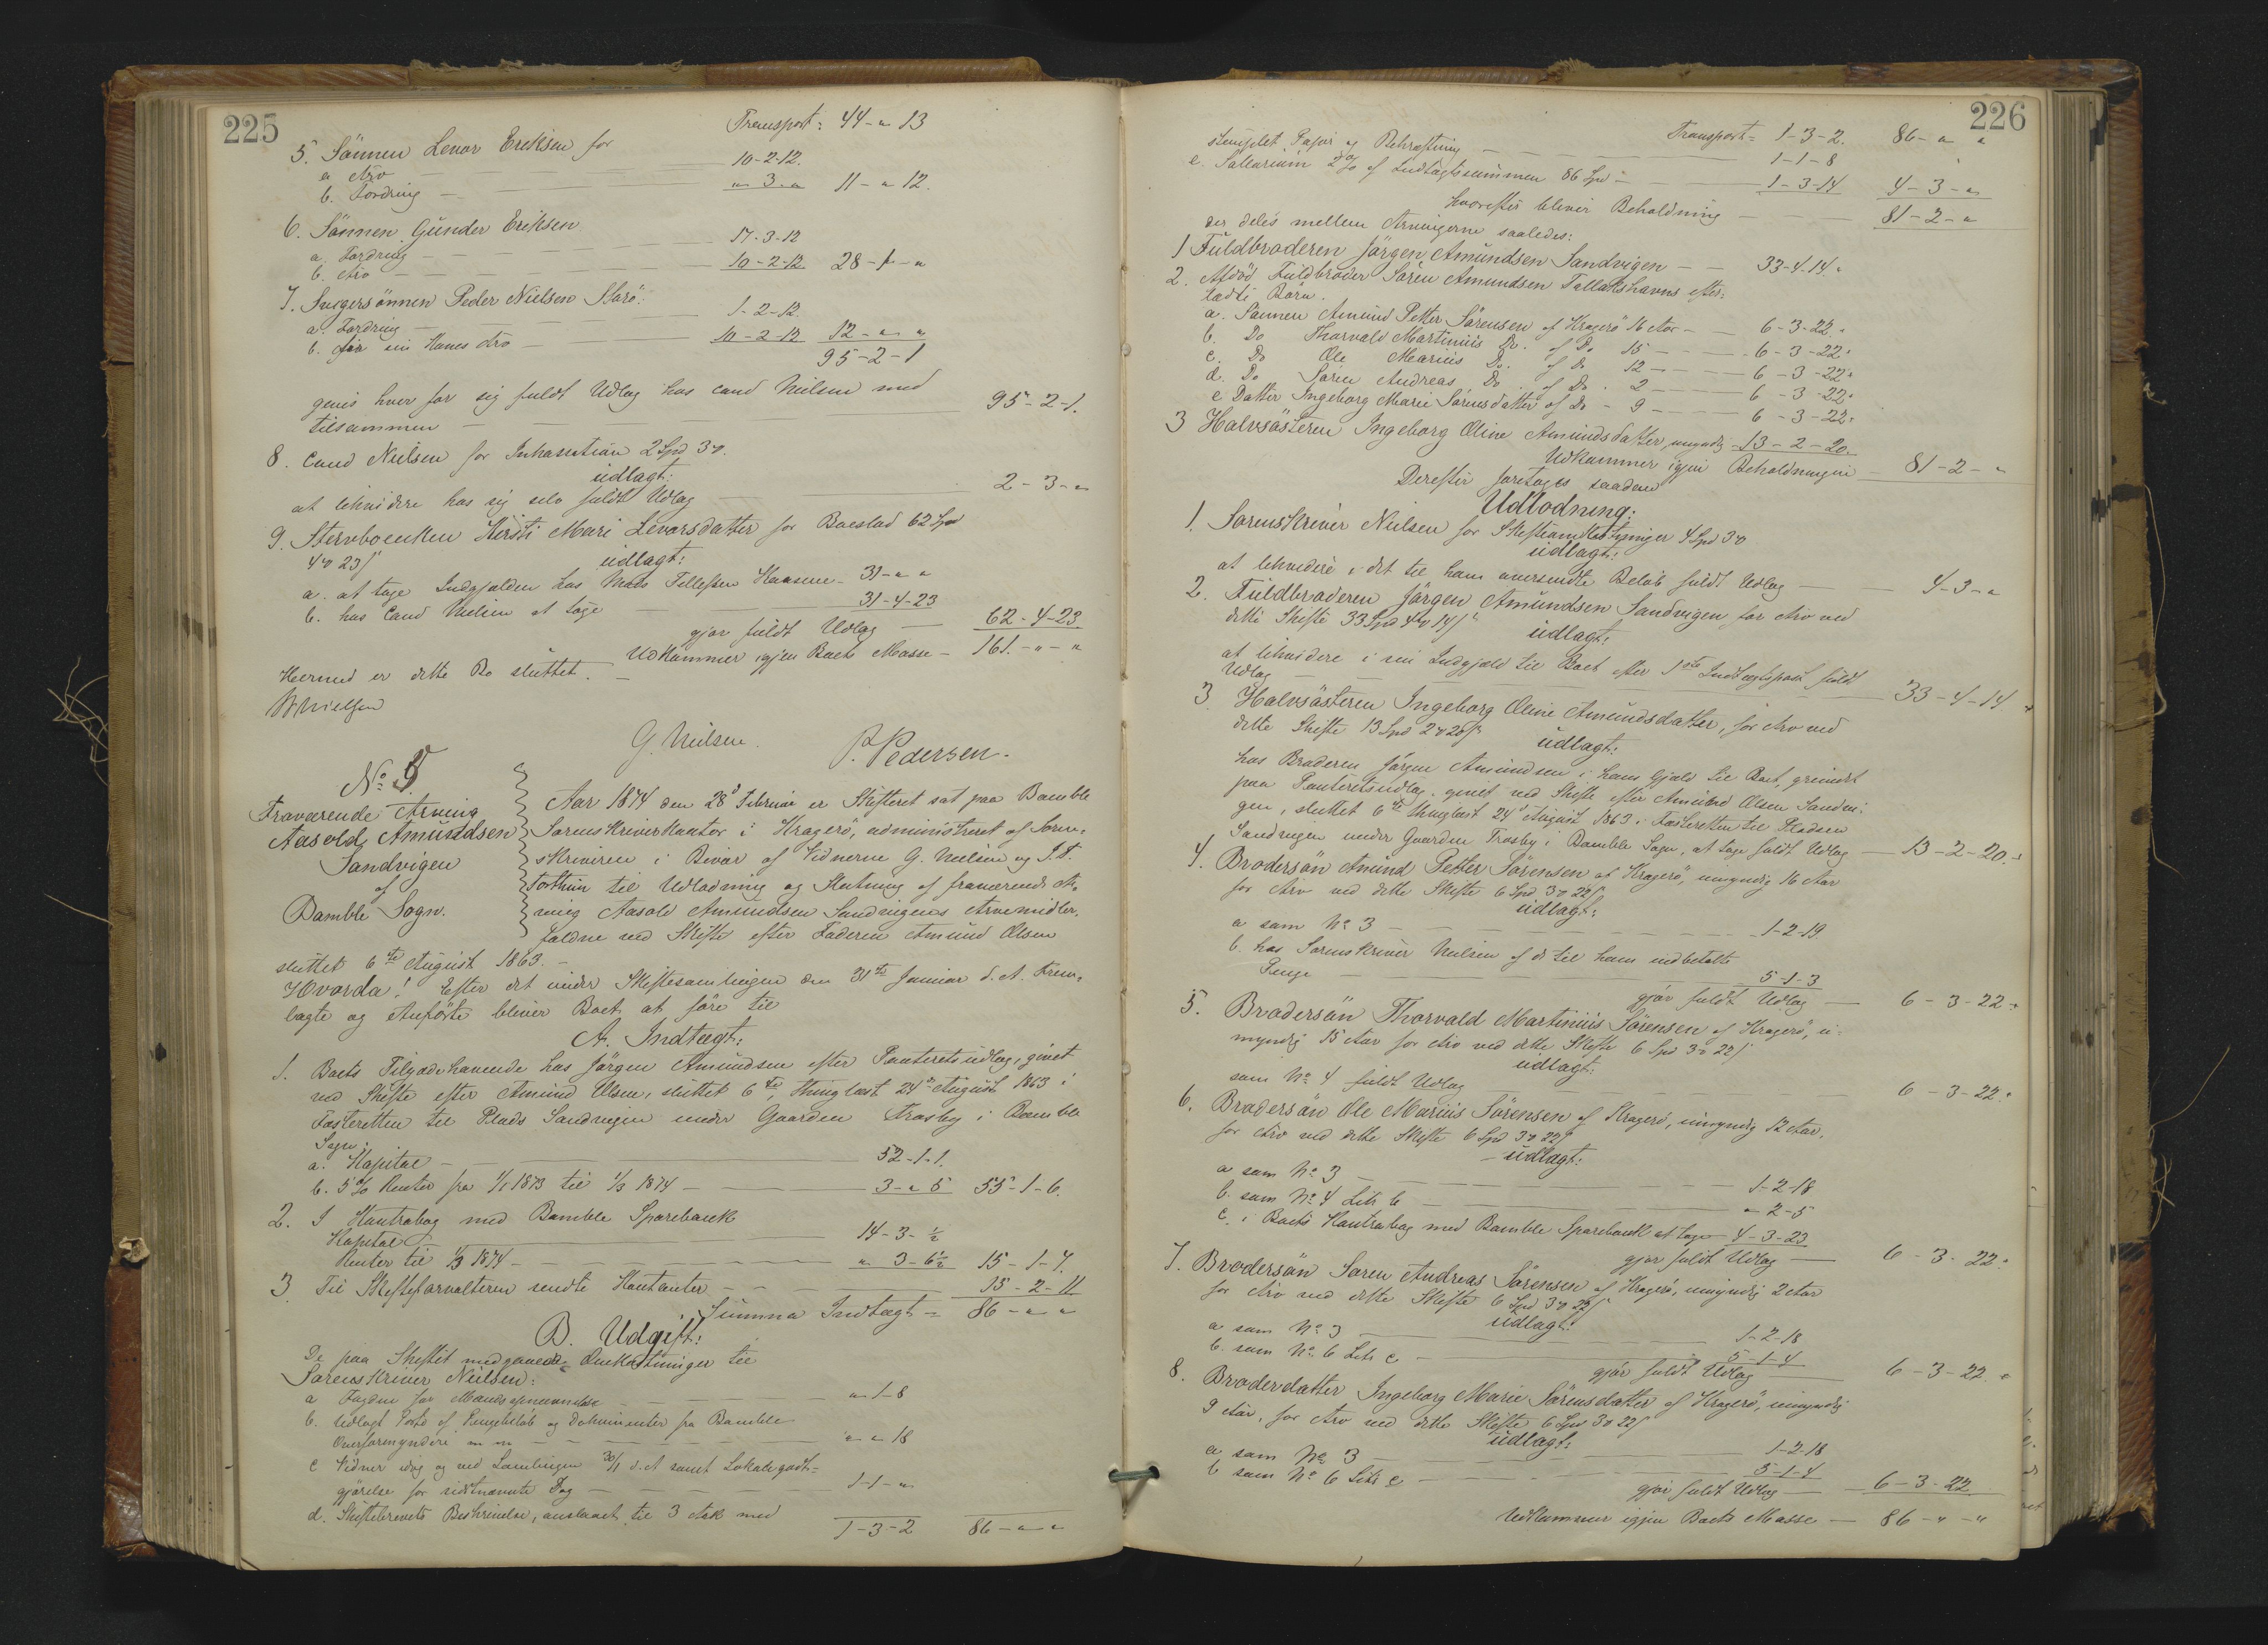 225
Transport: 44-"-13
5. Sönnen Levor Eriksen for
a Arv — 10-2-12.
b. Fordring — "-3-" 11-"-12.
6. Sönnen Gunder Eriksen
a. Fordring — 17-3-12
b. Arv — 10-2-12 28-1-"
7. Svigersönnen Peder Nielsen
a. Fordring — 1-2-12.
b. for sin Kones Arv — 10-2-12 12-"-"
95-2-1
gives hver for sig fuldt Udlag hos Cand Nielsen med
tilsammen — 95-2-1.
8. Cand Nielsen for Inkasation 2 Spd 3 ort.
udlagt:
at likvidere hos sig selv fuldt Udlag — 2-3-"
9. Stervboenken Kirsti Mari Levorsdatter for Boeslod 62 Spd
4 ort 23 s udlagt:
a. at tage Indgjælden hos Mads Tellefsen — 31-"-"
b. hos Cand Nielsen at tage 31-4-23
gjør fuldt Udlag — 62-4-23.
Udkommer igjen Boets Masse — 161.-"-"
Hermed er dette Bo sluttet. —
Nielsen
G. Nielsen. P. Pedersen.
No 5
Fraværende Arving
Aasold Amundsen
Sandvigen
af
Bamble Sogn.
Aar 1874 den 28de Februar er Skifteret sat paa Bamble
Sorenskriverkontor i Kragerø, administreret af Soren-
skriveren i Bivær af Vidnerne G. Nielsen og
til Udlodning og Slutning af fraværende Ar-
ving Aasold Amundsen Sandvigens Arvemidler,
faldne ved Skifte efter Faderen Amund Olsen
sluttet 6te August 1863. —
Hvorda! Efter det under Skiftesamlingen den 31te Januar d. A. Frem-
lagte og Anførte bliver Boet at føre til
A. Indtægt:
1. Boets Tilgodehavende hos Jörgen Amundsen efter Panteretsudlæg, givet
ved Skifte efter Amund Olsen, sluttet 6te, thinglæst 24de August 1863 i
Fæsteretten til Plads Sandvigen under Gaarden Trosby i Bamble
Sogn:
a. Kapital — 52-1-1.
b. 5% Renter fra 1/1 1873 til 1/3 1874 — 3-"-5 55-1-6.
2. I Kontrabog med Bamble Sparebank
Kapital — 14-3-½
Renter til 1/3 1874 — "-3-6½ 15-1-7.
3 Til Skifteforvalteren sendte Kontanter — 15-2-11
Summa Indtægt = 86-"-"
B. Udgift:
De paa Skiftet medgaaede Omkostninger til
Sorenskriver Nielsen:
a Fogden for Mandsopnævnelse — "-1-8
b. Udlagt Porto af Pengebeløb og Dokumenter fra Bamble
Overformynderi m m — "-"-18
c Vidner idag og ved Samlingen 31/1 d. A. samt Lokalegodt-
gjørelse for sidstnævnte Dag — 1-1-"
d. Skiftebrevets Beskrivelse, anslaaet til 3 Ark med
1-3-2 86-"-"
226
Transport = 1-3-2. 86-"-"
stemplet Papir og Bekræftning — 1-1-8
e. Sallarium 2% af Indtægtssummen 86 Spd — 1-3-14 4-3-"
hvorefter bliver Beholdning — 81-2-"
der deles mellem Arvingerne saaledes:
1 Fuldbroderen Jörgen Amundsen Sandvigen — 33-4-14.
2. Afdød Fuldbroder Sören Amundsen Tallakshavns efter-
ladte Børn.
a. Sønnen Amund Petter Sörensen af Kragerø 16 Aar — 6-3-22.
b. Do Thorvald Martinius Do. af Do 15 — 6-3-22.
c. Do Ole Marius Do. af Do 12 — 6-3-22.
d. Do Sören Andreas Do. af Do. 2 — 6-3-22.
e Datter Ingeborg Marie Sörensdatter af Do - 9 — 6-3-22.
3 Halvsösteren Ingeborg Oline Amundsdatter, umyndig 13-2-20.
Udkommer igjen Beholdningen — 81-2-"
Derefter foretoges saadan
Udlodning:
1. Sorenskriver Nielsen for Skifteomkostninger 4 Spd 3 ort
udlagt:
at likvidere i det til ham oversendte Beløb fuldt Udlag — 4-3-"
2. Fuldbroderen Jörgen Amundsen Sandvigen for Arv ved
dette Skifte 33 Spd 4 ort 14 s udlagt:
at likvidere i sin Indgjæld til Boet efter 1ste Indtægtspost fuldt
Udlag — 33-4-14
3. Halvsösteren Ingeborg Oline Amundsdatter, for Arv ved
dette Skifte 13 Spd 2 ort 20 s udlagt:
hos Broderen Jörgen Amundsen i hans Gjæld til Boet, grundet
paa Panteretsudlæg, givet ved Skifte efter Amund Olsen Sandvi-
gen, sluttet 6te thinglæst 24de August 1863 i Fæsteretten til Pladsen
Sandvigen under Gaarden Trosby i Bamble Sogn, at tage fuldt Udlag — 13-2-20.
4. Brodersön Amund Petter Sörensen af Kragerø, umyndig 16 Aar
for Arv ved dette Skifte 6 Spd 3 ort 22 s
udlagt:
a som No 3 — 1-2-19.
b. hos Sorenskriver Nielsen af de til ham indbetalte
Penge — 5-1-3
gjør fuldt Udlag — 6-3-22
5. Brodersön Thorvald Martinius Sörensen af Kragerø, u-
myndig 15 Aar for Arv ved dette Skifte 6 Spd 3 ort 22 s
udlagt:
som No 4 fuldt Udlag — 6-3-22.
6. Brodersön Ole Marius Sörensen af Kragerø, umyndig 12 Aar,
for Arv ved dette Skifte 6 Spd 3 ort 22 s
udlagt:
a som No 3 — 1-2-18
b. som No 4 Litr b — "-2-5
c. i Boets Kontrabog med Bamble Sparebank at tage 4-3-23
gjør fuldt Udlag — 6-3-22.
7. Brodersön Soren Andreas Sörensen af Kragerø, umyndig 2 Aar
for Arv ved dette Skifte 6 Spd 3 ort 22 s
udlagt:
a som No 3 — 1-2-18
b. som No. 6 Litr c — 5-1-4
gjør fuldt Udlag — 6-3-22.
8. Broderdatter Ingeborg Marie Sörensdatter af Kragerø, umyndig
9 Aar, for Arv ved dette Skifte 6 Spd 3 ort 22 s
udlagt:
a som No 3 — 1-2-18
b som No 6 Litr c — 5-1-4
gjør fuldt Udlag — 6-3-22
Udkommer igjen Boets Masse — 86-"-"